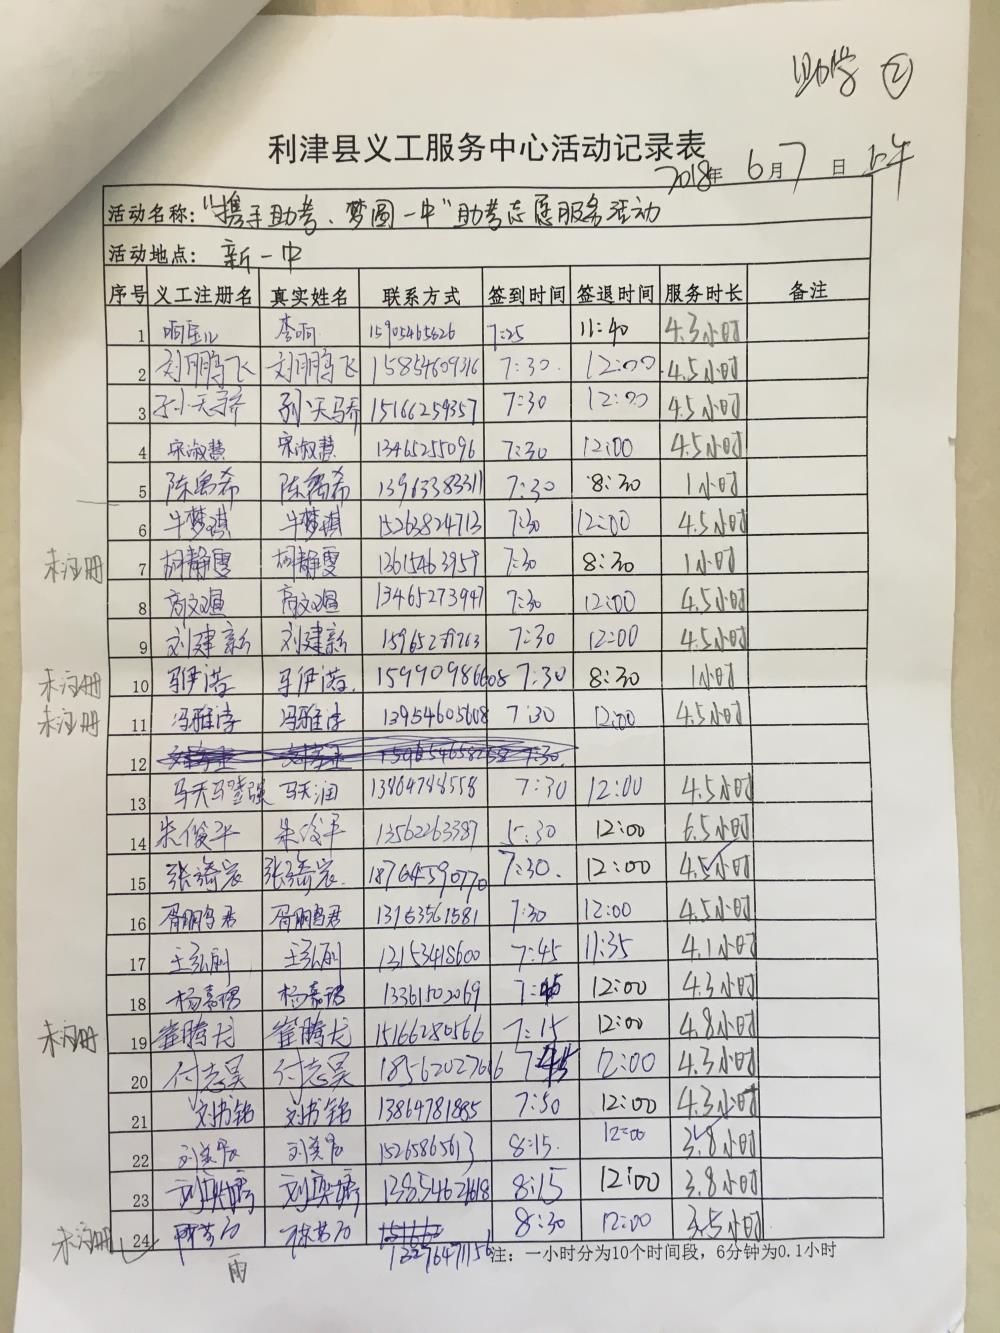 助学 ②
利津县义工服务中心活动记录表
2018年 6月7日 上午
活动名称："携手助考、梦圆一中"助考志愿服务活动
活动地点：新一中
序号 义工注册名 真实姓名 联系方式 签到时间 签退时间 服务时长 备注
1 李响 15905465626 7:25 11:40 4.3小时
2 刘鹏飞 刘鹏飞 15854609316 7:30 12:00 4.5小时
3 孙天骄 孙天骄 15166259357 7:30 12:00 4.5小时
4 宋淑慧 宋淑慧 13465255096 7:30 12:00 4.5小时
5 陈禹希 陈禹希 13963383311 7:30 8:30 1小时
6 牛梦琪 牛梦琪 15263824713 7:30 12:00 4.5小时
未注册 7 胡静雯 胡静雯 13615463959 7:30 8:30 1小时
8 13465273947 7:30 12:00 4.5小时
9 刘建新 刘建新 7:30 12:00 4.5小时
未注册 10 马伊诺 马伊诺 15990986608 7:30 8:30 1小时
未注册 11 冯雅诗 冯雅诗 13954605608 7:30 12:00 4.5小时
12 7:30
13 马天润 13864788558 7:30 12:00 4.5小时
14 朱俊平 朱俊平 13562263387 5:30 12:00 6.5小时
15 18764590770 7:30 12:00 4.5小时
16 胥鹏君 胥鹏君 7:30 12:00 4.5小时
17 王弘刚 王弘刚 13153418600 7:45 11:35 4.1小时
18 杨嘉珺 杨嘉珺 13361502069 7:45 12:00 4.3小时
未注册 19 崔腾龙 崔腾龙 15166280566 7:15 12:00 4.8小时
20 付志昊 付志昊 18562027616 7:45 12:00 4.3小时
21 刘书铭 刘书铭 13864781885 7:50 12:00 4.3小时
22 15265865613 8:15 12:00 3.8小时
23 8:15 12:00 3.8小时
未注册 24 13276471156 8:30 12:00 3.5小时
雨
注：一小时分为10个时间段，6分钟为0.1小时